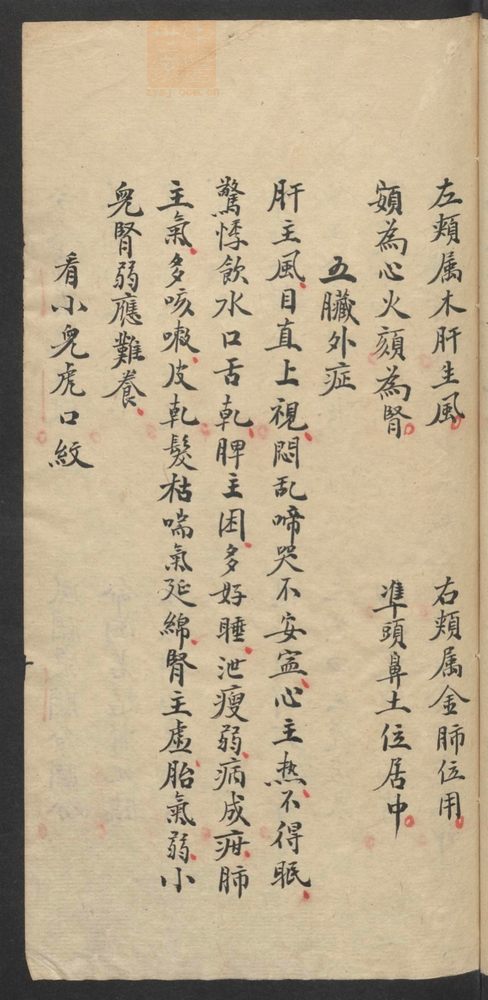 左頬属木肝生風 右頬属金肺位用
額為心火頦為腎 準頭鼻土位居中
五臟外症
肝主風目直上視悶乱啼哭不安寍心主热不得眠
驚悸飲水口舌乾脾主困多好睡泄瘦弱病成疳肺
主氣多咳嗽皮乾髮枯喘氣延綿腎主虛胎氣弱小
兒腎弱應難養
看小兒虎口紋